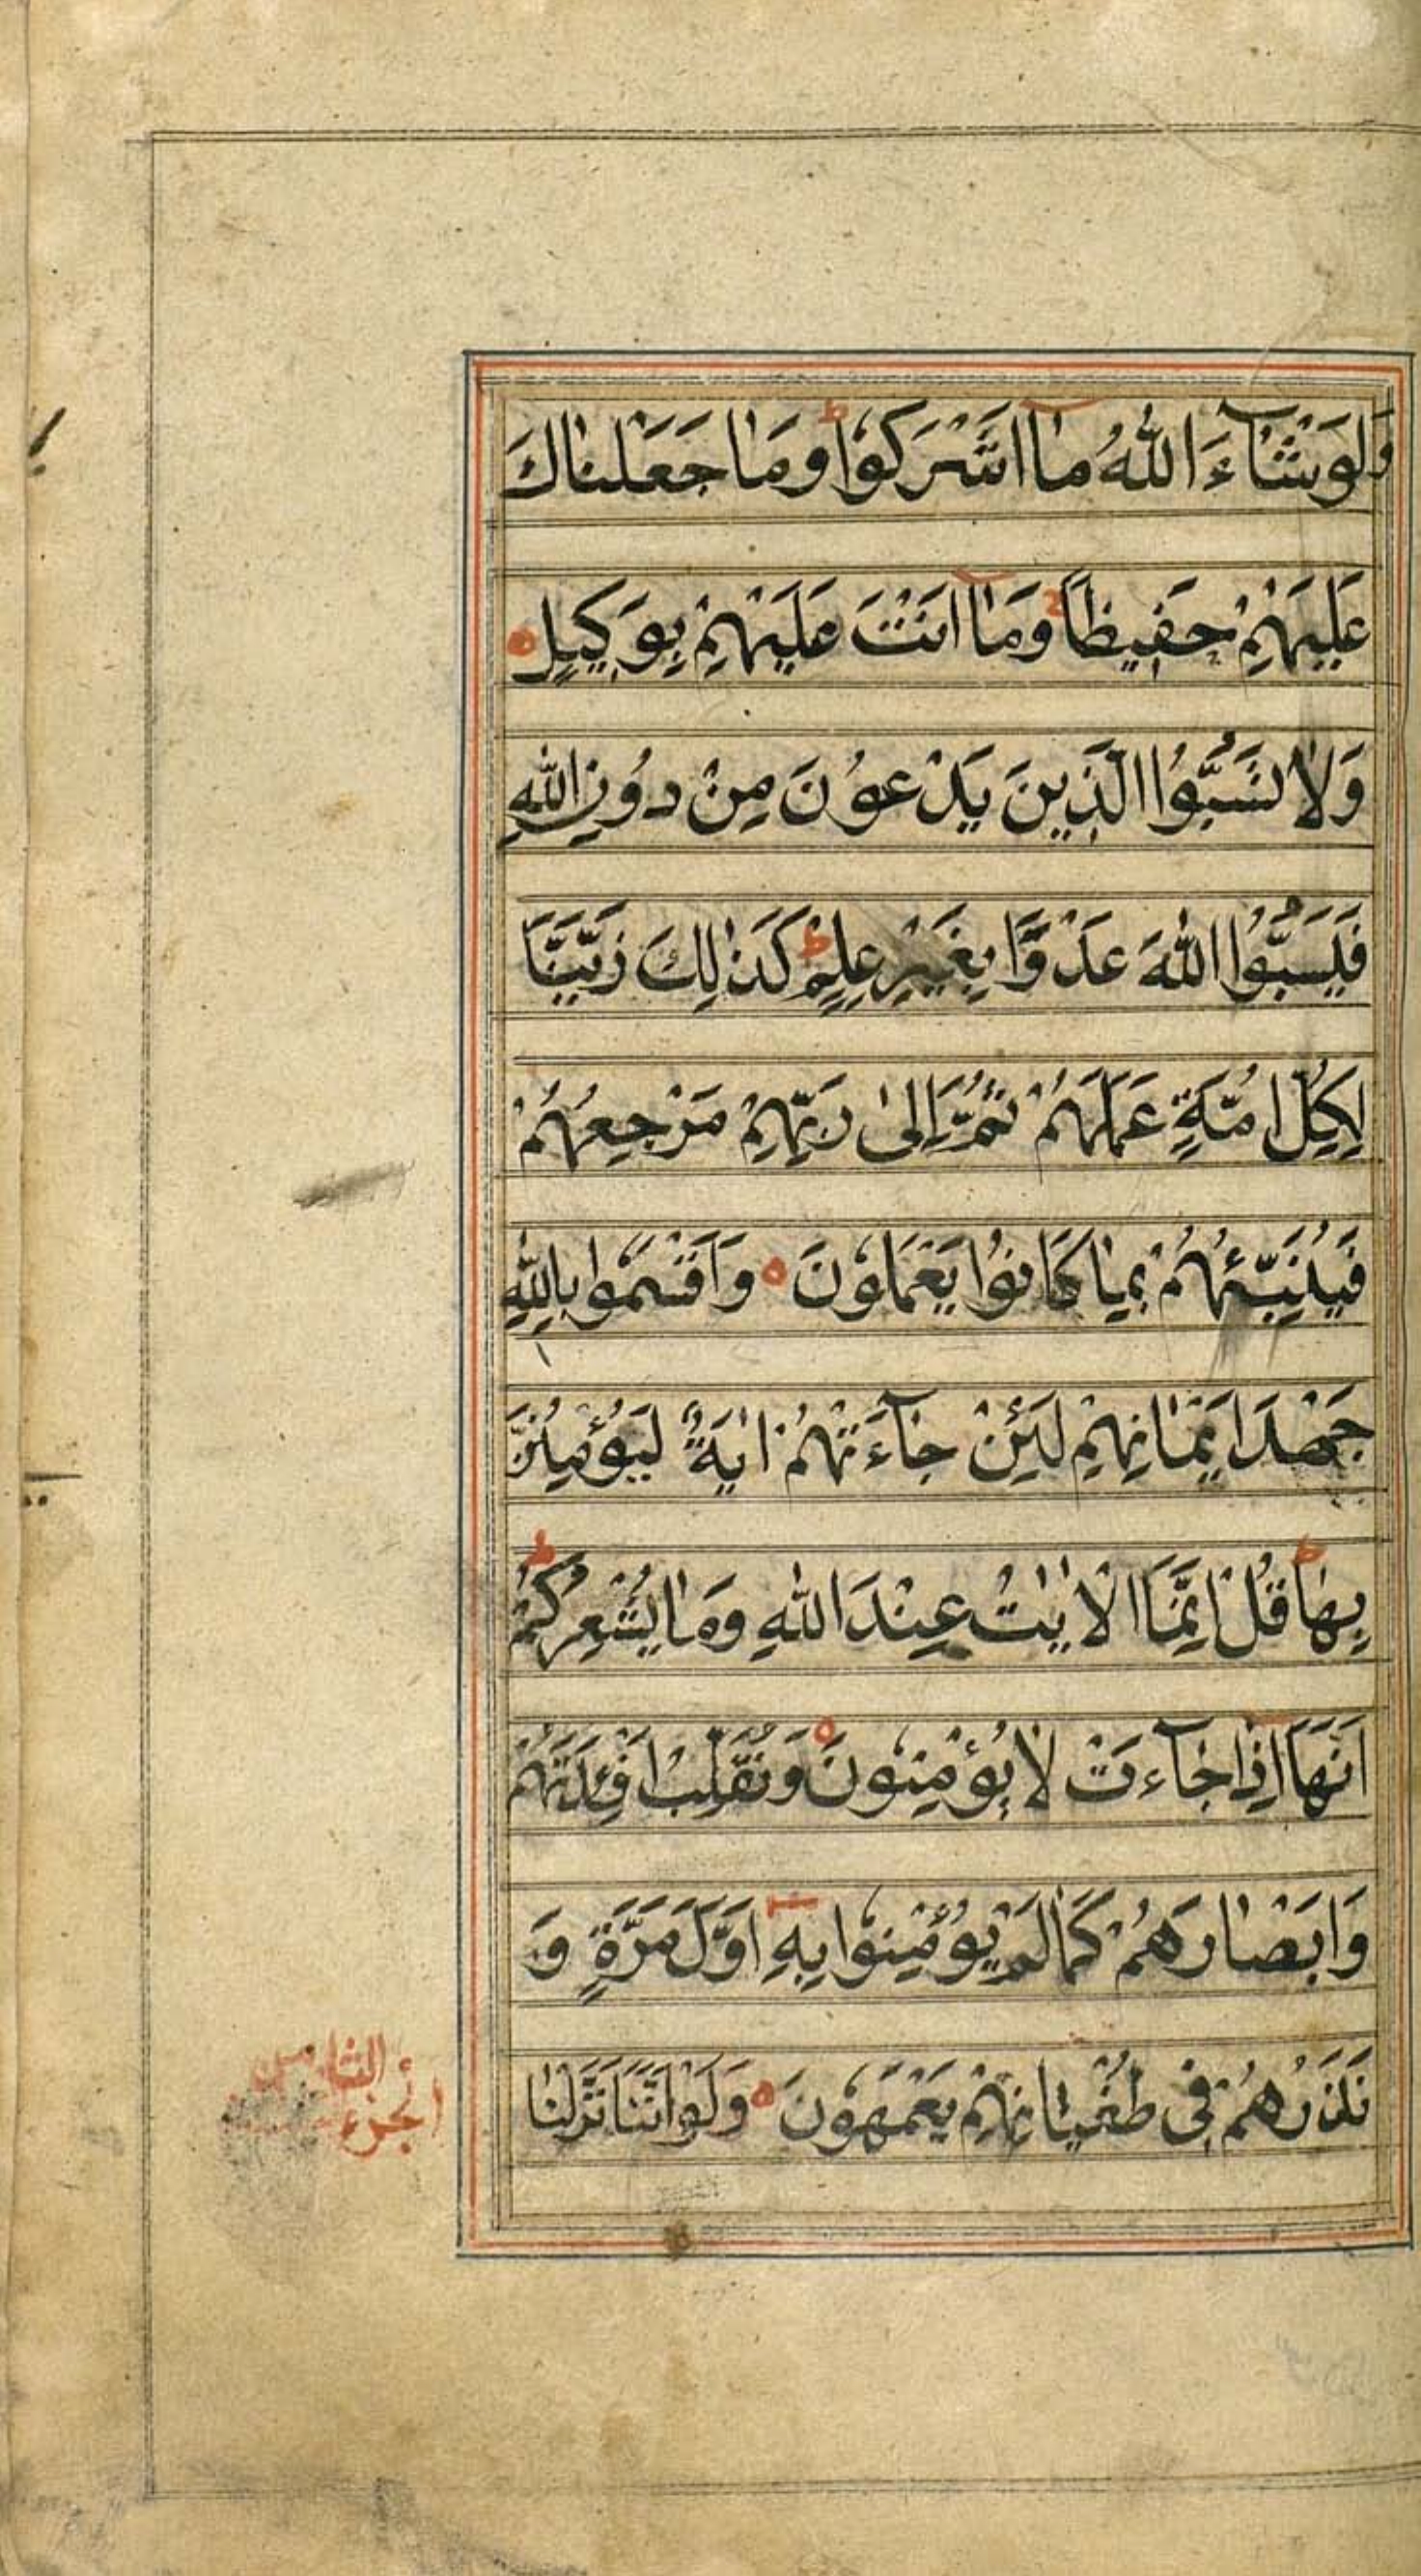 وَلَوْ شَآءَ اللّٰهُ مٰٓا اَشْرَكُوْا ط وَمٰا جَعَلْنٰاكَ
عَلَيْهِمْ حَفِيظًا وَمٰٓا اَنْتَ عَلَيْهِمْ بِوَكِيلٍ
وَلاٰ تَسُبُّوا الَّذِينَ يَدْعُونَ مِنْ دُونِ اللّٰهِ
فَيَسُبُّوا اللّٰهَ عَدْوًا بِغَيْرِ عِلْمٍ ط كَذٰلِكَ زَيَّنَّا
لِكُلِّ اُمَّةٍ عَمَلَهُمْ ثُمَّ اِلىٰ رَبِّهِمْ مَرْجِعُهُمْ
فَيُنَبِّئُهُمْ بِمٰا كٰانُوا يَعْمَلُونَ وَاَقْسَمُوا بِاللّٰهِ
جَهْدَ اَيْمٰانِهِمْ لَئِنْ جٰآءَتْهُمْ اٰيَةٌ لَيُؤْمِنُنَّ
بِهٰا ط قُلْ اِنَّمَا الْاٰيٰتُ عِنْدَ اللّٰهِ وَمٰا يُشْعِرُكُمْ ط
اَنَّهَا اِذٰا جٰآءَتْ لاٰ يُؤْمِنُونَ وَنُقَلِّبُ اَفْئِدَتَهُمْ
وَاَبْصٰارَهُمْ كَمٰا لَمْ يُؤْمِنُوا بِهِ اَوَّلَ مَرَّةٍ وَ
نَذَرُهُمْ فِى طُغْيٰانِهِمْ يَعْمَهُونَ وَلَوْ اَنَّنٰا نَزَّلْنٰا
الجزء
الثامن